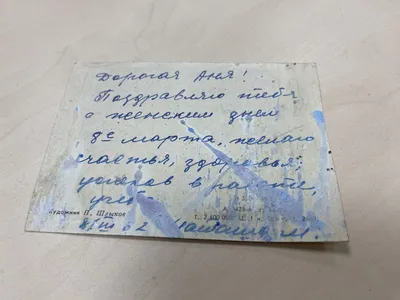 Дорогая Аня!
Поздравляю тебя
с женским днем
8е марта, желаю
счастья, здоровья,
успехов в работе,
Художник П.
8/III 62 М.